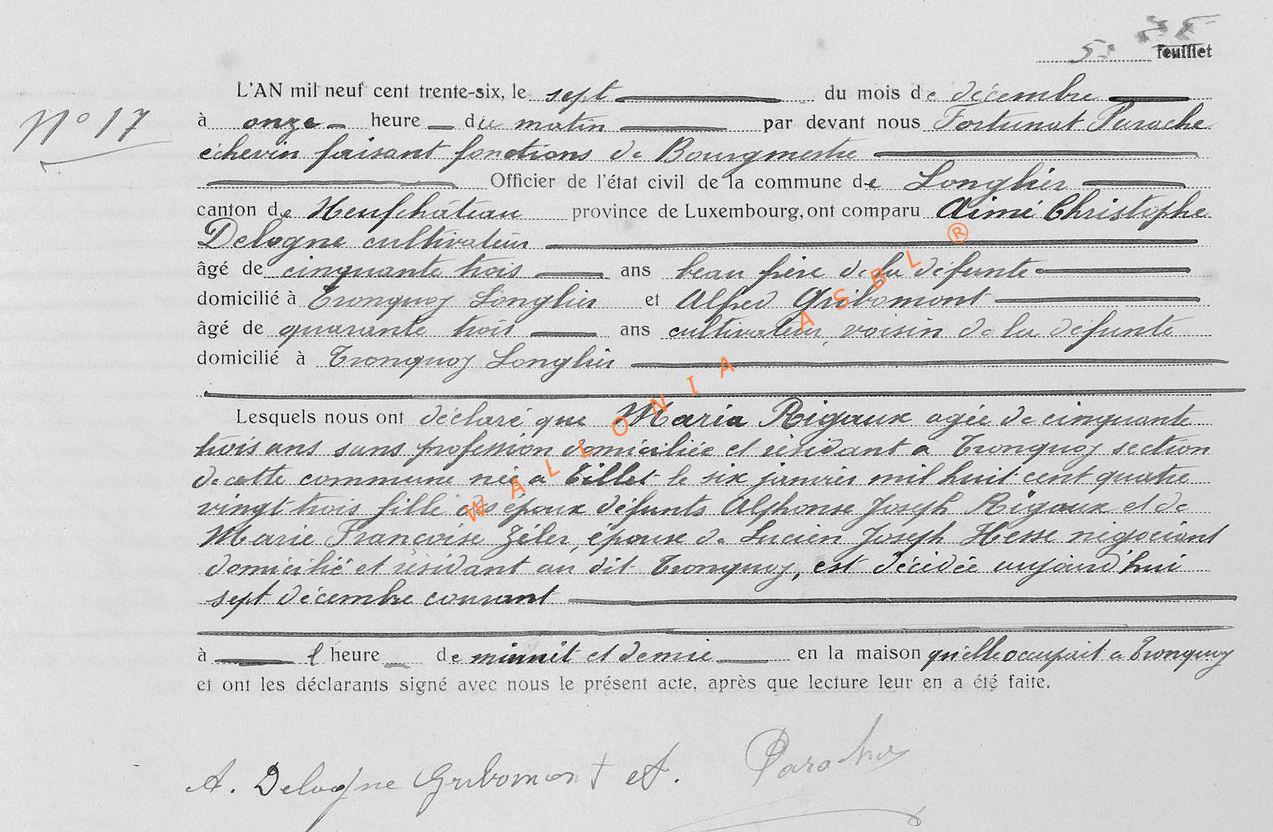 feuillet
N° 17
L'AN mil neuf cent trente-six, le sept du mois de décembre
à onze heure du matin par devant nous Fortunat Parache
échevin faisant fonctions de Bourgmestre
Officier de l'état civil de la commune de Longlier
canton de Neufchâteau province de Luxembourg, ont comparu Aimé Christophe
Delogne cultivateur
âgé de cinquante trois ans beau frère de la défunte
domicilié à Tronquoy Longlier et Alfred Gribomont
âgé de quarante trois ans cultivateur, voisin de la défunte
domicilié à Tronquoy Longlier
Lesquels nous ont déclaré que Maria Rigaux agée de cinquante
trois ans sans profession domiciliée et résidant a Tronquoy section
de cette commune née a Tillet le six janvier mil huit cent quatre
vingt trois fille des époux défunts Alphonse Joseph Rigaux et de
Marie Francoise Zéler, épouse de Lucien Joseph Hesse négociant
domicilié et résidant au dit Tronquoy, est décédée aujourd'hui
sept décembre courant
à l'heure de minuit et demie en la maison qu'elle occupait a Tronquoy
et ont les déclarants signé avec nous le présent acte, après que lecture leur en a été faite.
A. Delogne Gribomont A. Parache
WALLONIA ASBL ®